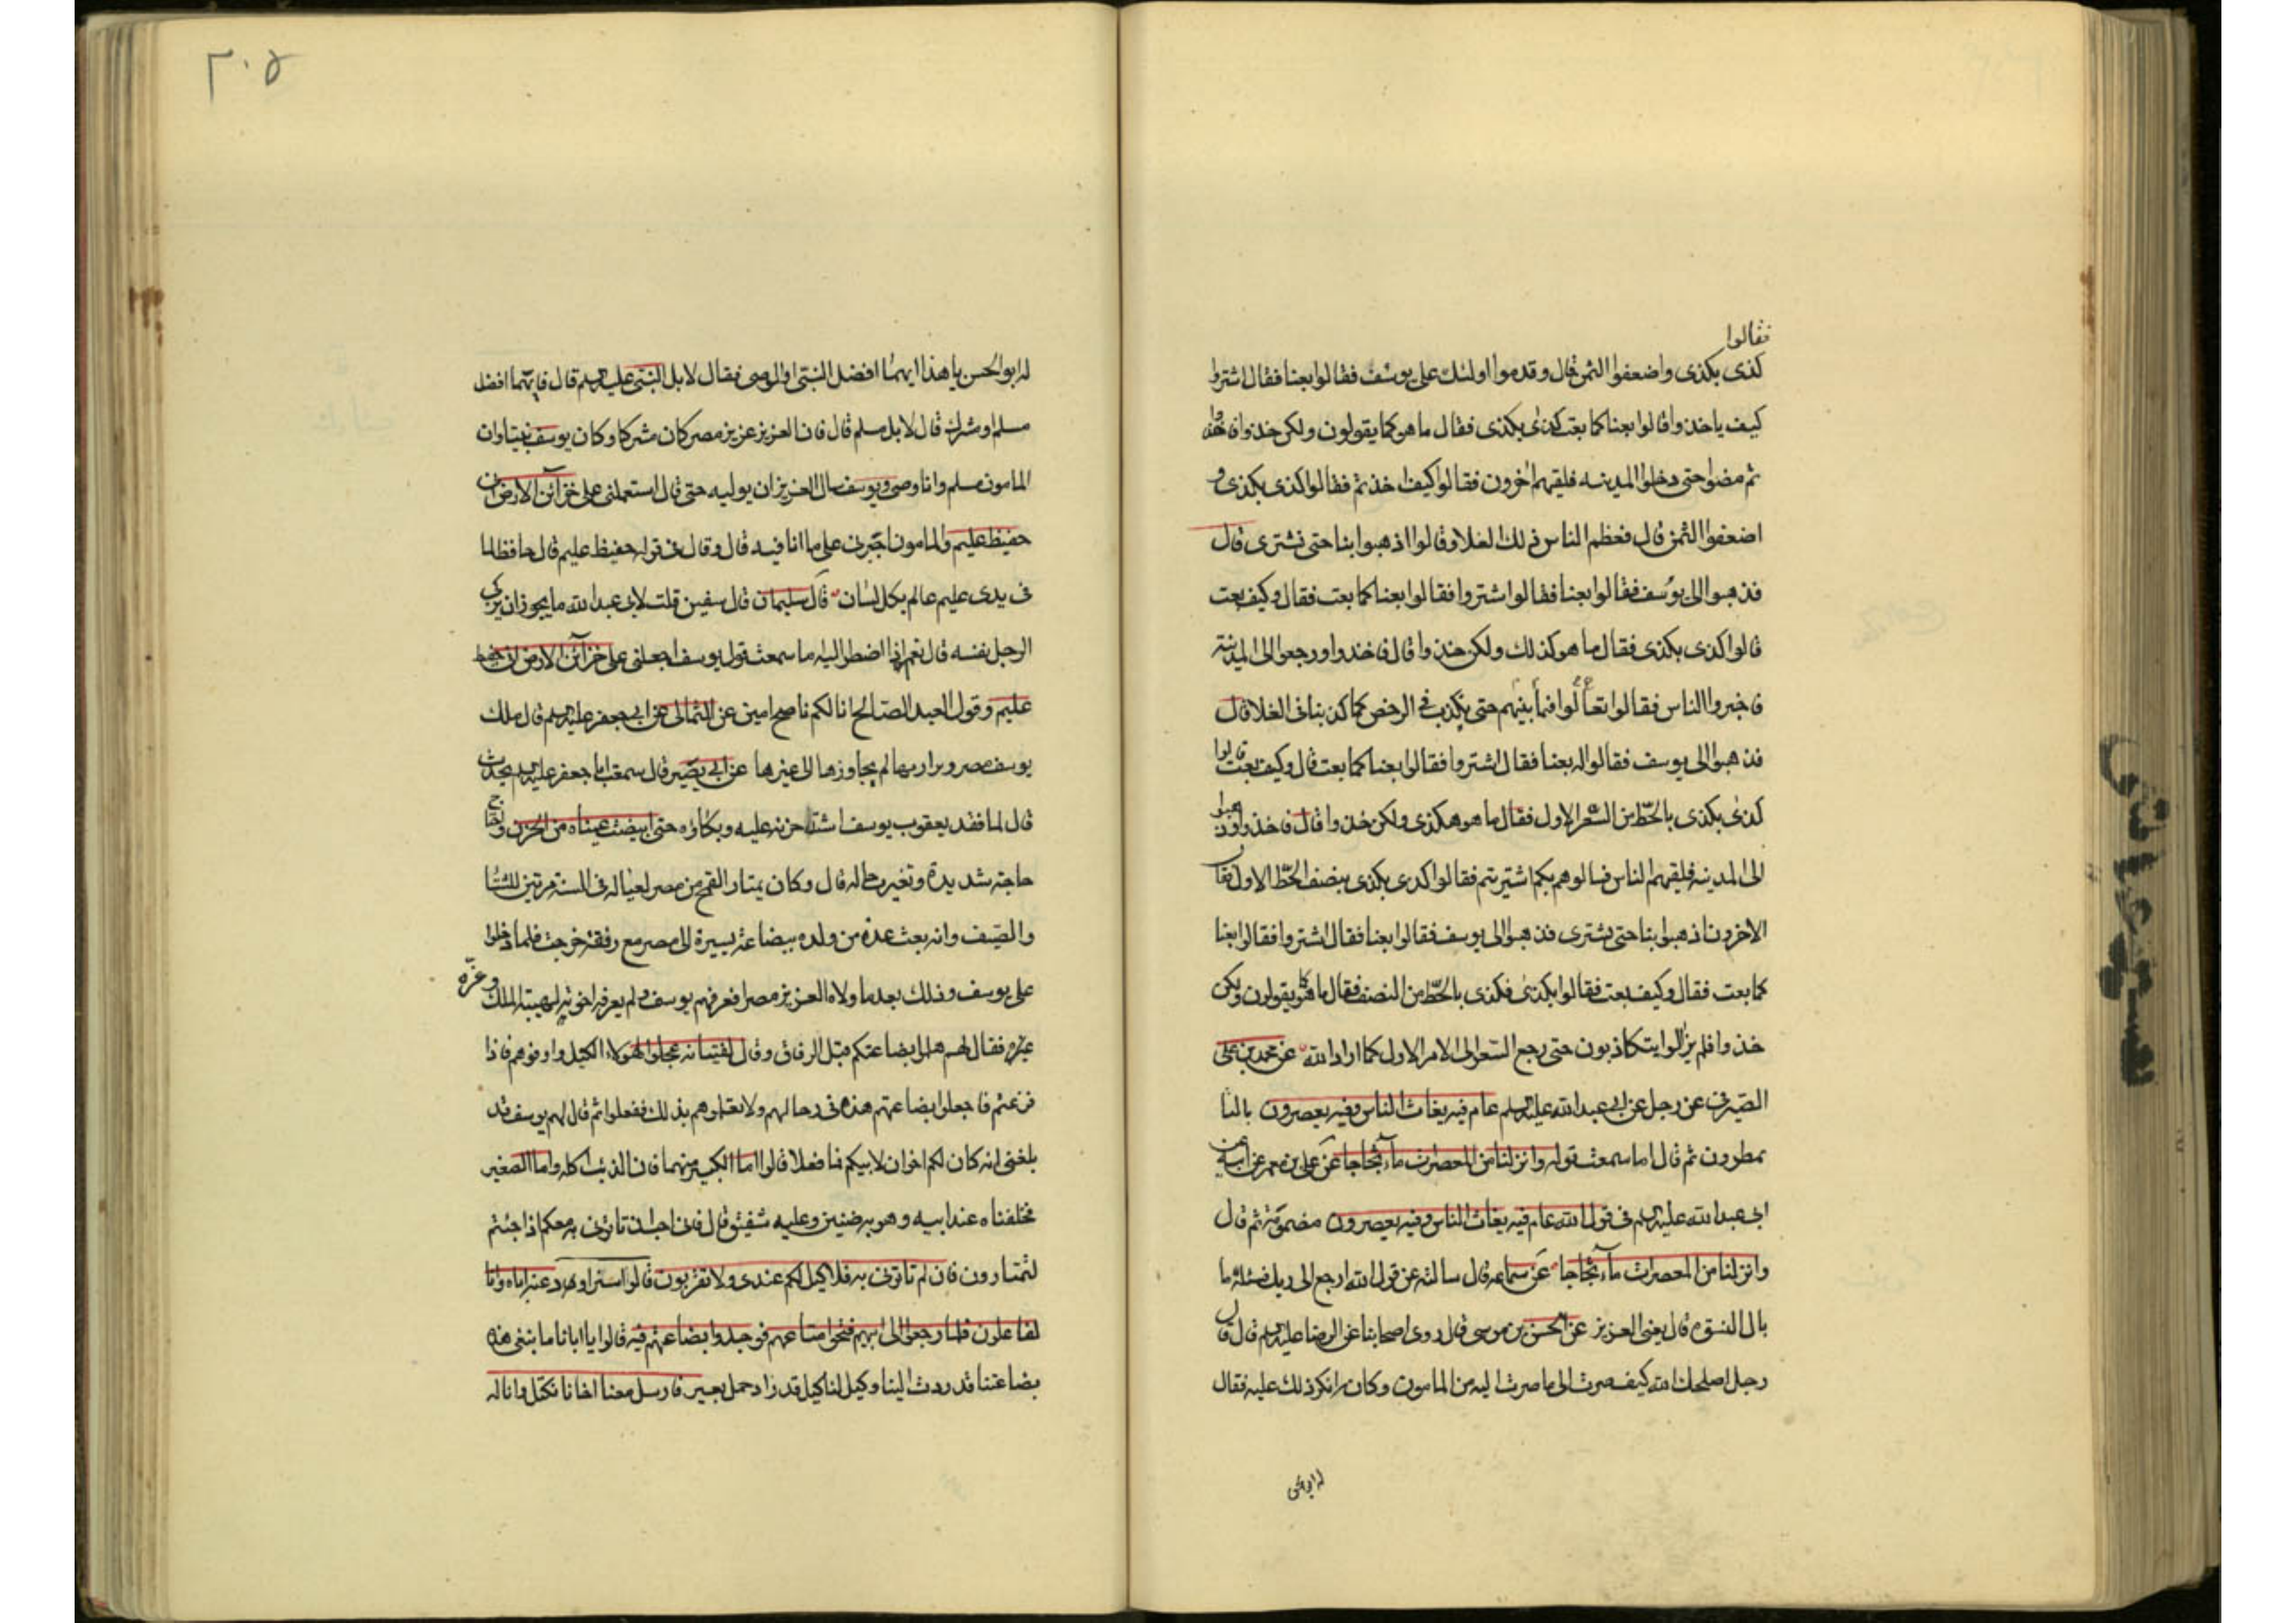 فقالوا
كذى بكذى واضعفوا الثمن قال وقدموا اولئك على يوسف فقالوا بعنا فقال اشتروا
كيف ياخذوا قالوا بعنا كما بعت كذى بكذى فقال ما هو كما يقولون ولكن خذوا فاخذوا
ثم مضوا حتى دخلوا المدينه فلقيهم اخرون فقالوا كيف اخذتم فقالوا كذى بكذى و
اضعفوا الثمن قال فعظم الناس ذلك الغلا وقالوا اذهبوا بنا حتى نشترى قال
فذهبوا الى يوسف فقالوا بعنا فقالوا اشتروا فقالوا بعنا كما بعت فقال وكيف بعت
قالوا كذى بكذى فقال ما هو كذلك ولكن خذوا قال فاخذوا ورجعوا الى المدينه
فاخبروا الناس فقالوا تعالوا فيما بينهم حتى نكذب فى الرخص كما كذبنا فى الغلا قال
فذهبوا الى يوسف فقالوا له بعنا فقال اشتروا فقالوا بعنا كما بعت قال وكيف بعت قالوا
كذى بكذى بالحط من السعر الاول فقال ما هو هكذى ولكن خذوا قال فاخذوا وذهبوا
الى المدينه فلقيهم الناس فسالوهم بكم اشتريتم فقالوا كذى بكذى بنصف الحط الاول فقال
الاخرون اذهبوا بنا حتى نشترى فذهبوا الى يوسف فقالوا بعنا فقال اشتروا فقالوا بعنا
كما بعت فقال وكيف بعت فقالوا بكذى فكذى بالحط من النصف فقال ما هو كما يقولون ولكن
خذوا فلم يزالوا يتكاذبون حتى رجع السعر الى الامر الاول كما اراد الله عن محمد بن على
الصيرفى عن رجل عن ابى عبد الله عليه السلم عام فيه يغاث الناس وفيه يعصرون بالتا
يمطرون ثم قال اما سمعت قوله وانزلنا من المعصرات مآء ثجاجا عن على بن معمر عن ابيه عن
ابى عبد الله عليه السلم فى قول الله عام فيه يغاث الناس وفيه يعصرون مضمومة ثم قال
وانزلنا من المعصرات مآء ثجاجا عن سماعه قال سالته عن قول الله ارجع الى ربك فسئله ما
بال النسوة قال يعنى العزيز عن الحسن بن موسى قال روى اصحابنا عن الرضا عليه السلم قال قال
رجل اصلحك الله كيف صرت الى ما صرت اليه من المامون وكان انكر ذلك عليه فقال
له ابو الحسن
٣٠٥
له ابو الحسن يا هذا ايهما افضل النبى او الوصى فقال لا بل النبى عليه السلم قال فايهما افضل
مسلم او مشرك قال لا بل مسلم قال فان العزيز عزيز مصر كان مشركا وكان يوسف نبيا وان
المامون مسلم وانا وصى ويوسف سال العزيز ان يوليه حتى قال استعملنى على خزآئن الارض انى
حفيظ عليم والمامون اجبرنى على ما انا فيه قال وقال فى قوله حفيظ عليم قال حافظ لما
فى يدى عليم عالم بكل لسان قال سليمان قال سفين قلت لابى عبد الله ما يجوز ان يزكى
الرجل نفسه قال نعم اذا اضطر اليه ما سمعت قول يوسف اجعلنى على خزآئن الارض انى حفيظ
عليم وقول العبد الصالح انا لكم ناصح امين عن الثمالى عن ابى جعفر عليه السلم قال ملك
يوسف مصر وبراريها لم يجاوزها الى غيرها عن ابى بصير قال سمعت ابا جعفر عليه السلم يحدث
قال لما فقد يعقوب يوسف اشتد حزنه عليه وبكاؤه حتى ابيضت عيناه من الحزن واحتاج
حاجة شديدة وتغيرت حاله قال وكان يمتار القمح من مصر لعياله فى السنة مرتين للشتا
والصيف وانه بعث عدة من ولده ببضاعة يسيرة الى مصر مع رفقة خرجت فلما دخلوا
على يوسف وذلك بعد ما ولاه العزيز مصر فعرفهم يوسف ولم يعرفه اخوته لهيبة الملك وعزه
فقال لهم هلموا بضاعتكم قبل الرفاق وقال لفتيانه عجلوا لهولاء الكيل واوفوهم فاذا
فرغتم فاجعلوا بضاعتهم هذه فى رحالهم ولا تعلموهم بذلك ففعلوا ثم قال لهم يوسف قد
بلغنى انه كان لكم اخوان لابيكم فما فعلا قالوا اما الكبير منهما فان الذئب اكله واما الصغير
فخلفناه عند ابيه وهو به ضنين وعليه شفيق قال فانى احب ان تاتونى به معكم اذا جئتم
لتمتارون فان لم تاتونى به فلا كيل لكم عندى ولا تقربون قالوا سنراود عنه اباه وانا
لفاعلون فلما رجعوا الى ابيهم فتحوا متاعهم فوجدوا بضاعتهم فيه قالوا يا ابانا ما نبغى هذه
بضاعتنا قد ردت الينا وكيل لنا كيل قد زاد حمل بعير فارسل معنا اخانا نكتل وانا له